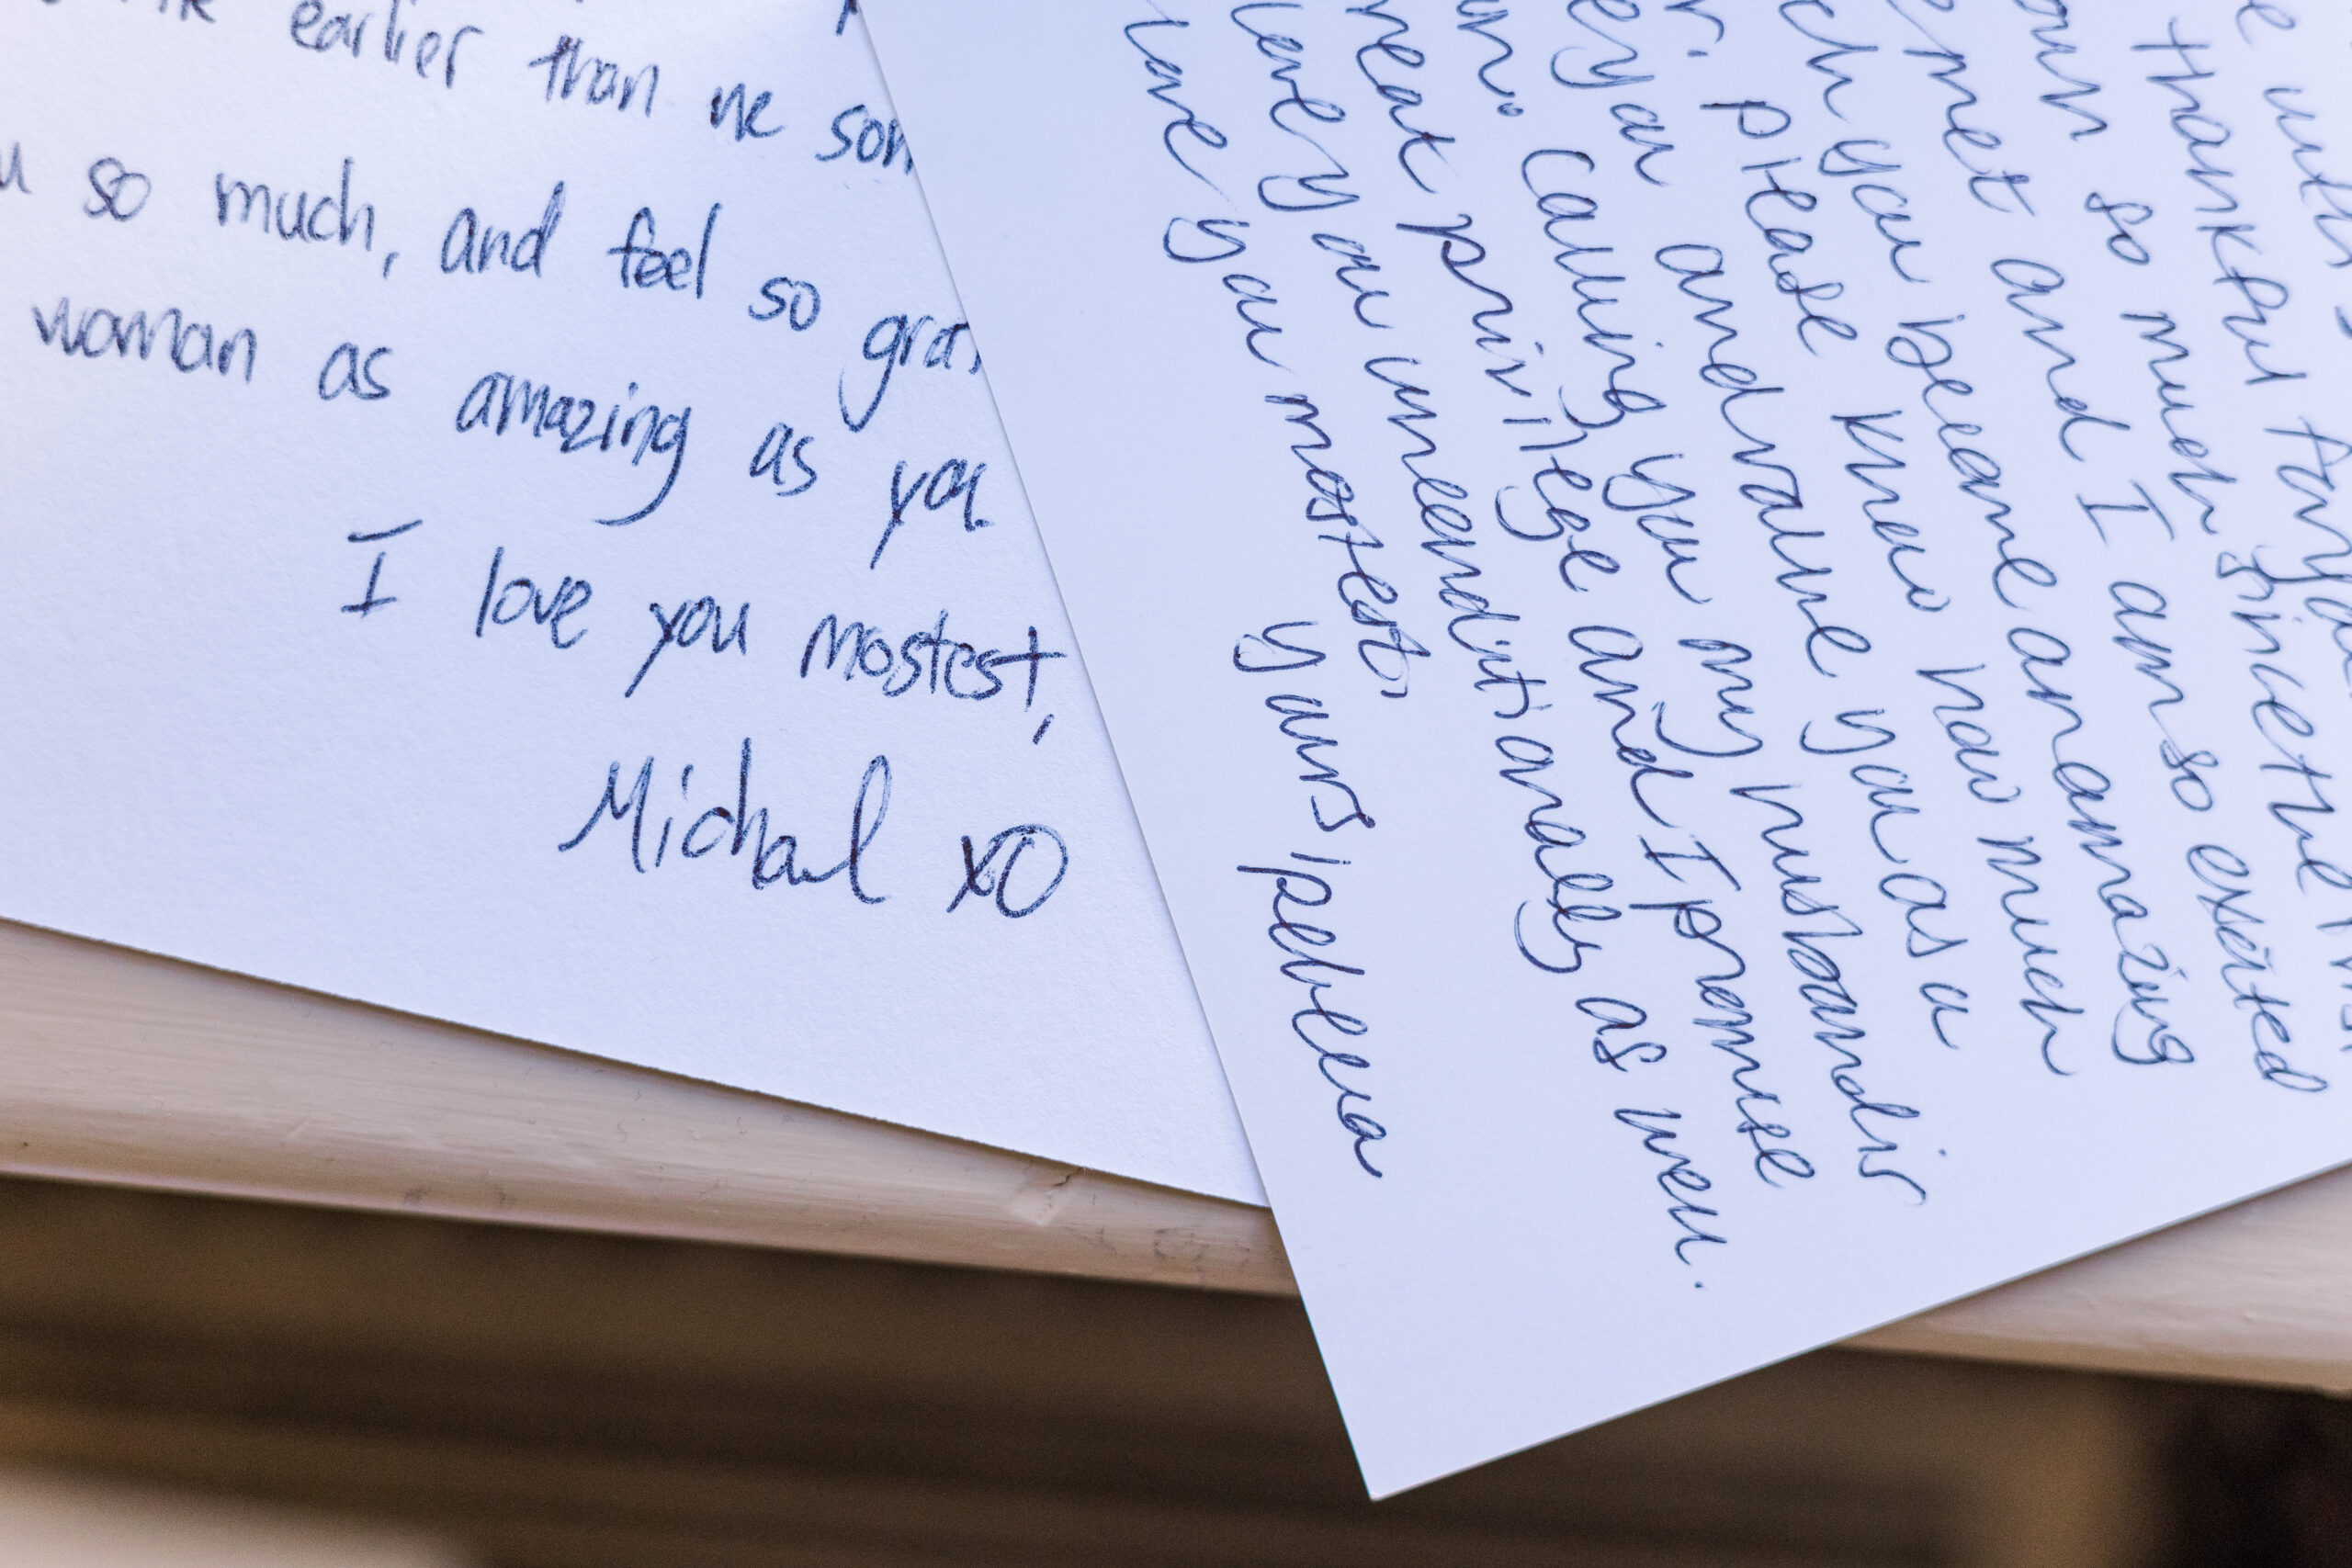 earlier than we som
u so much, and feel so grat
woman as amazing as you
I love you mostest,
Michael xO
e with
thankful for you
own so much since the
e met and I am so excited
ch you became an amazing
r. Please know how much
e you and value you as a
n. Calling you my husband is
reat privilege and I promise
love you unconditionally as well.
love you mostest,
yours, Rebecca